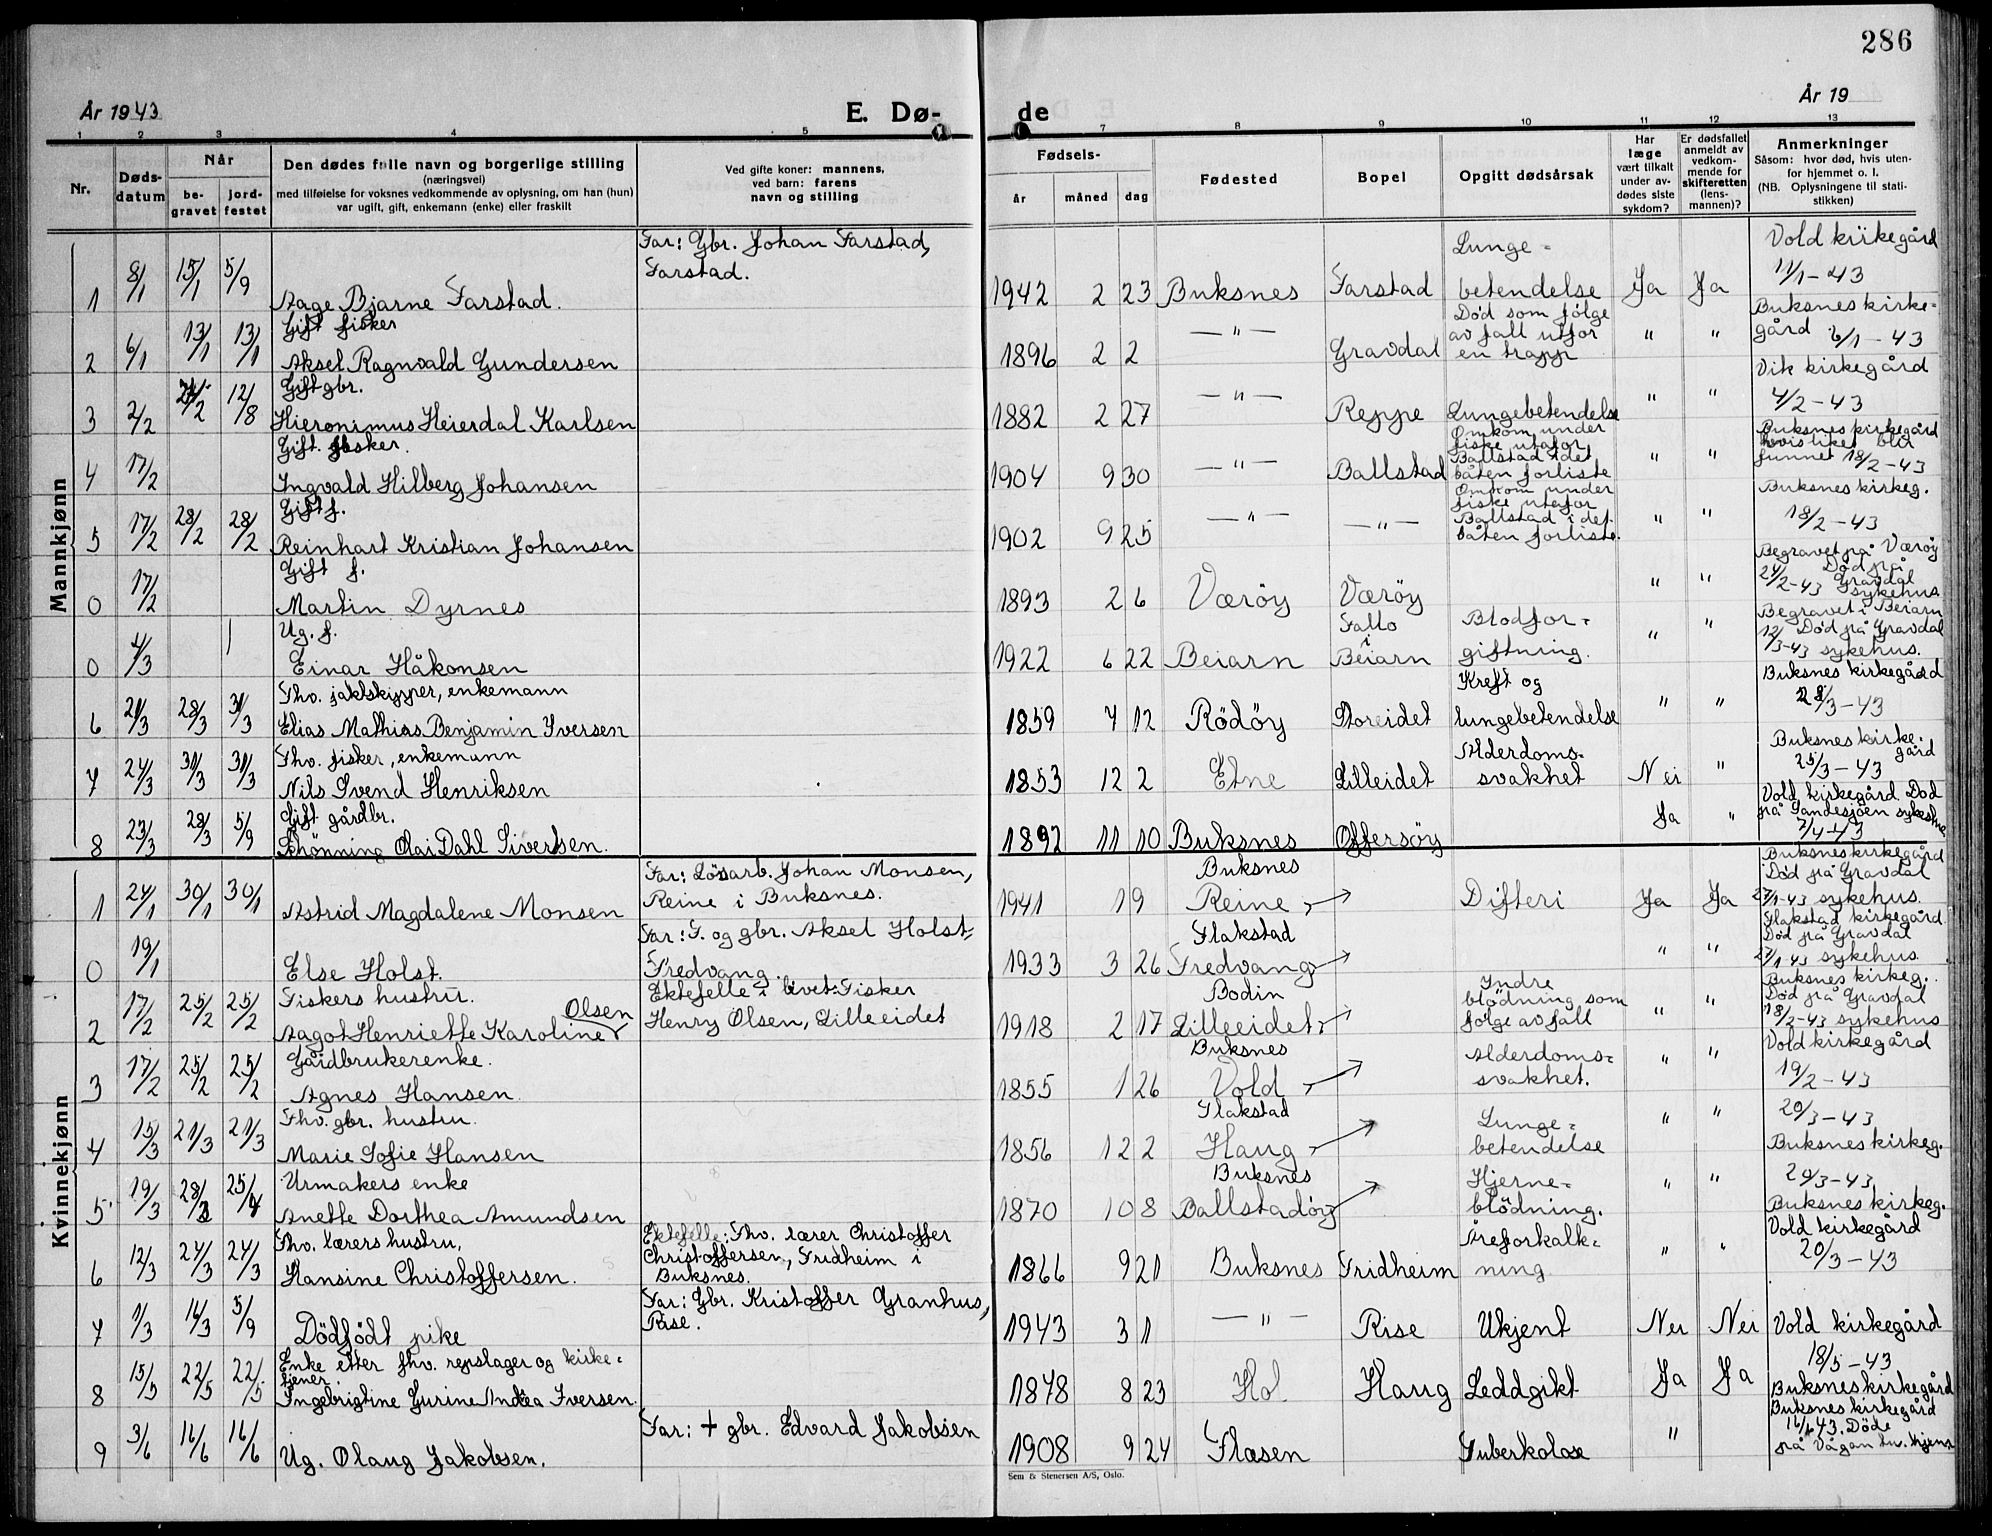 286
År 1943
E. Dø-
de
År 19
1 2 3 4 5 7 8 9 10 11 12 13
Nr.
Døds-
datum
Når
be-
gravet
jord-
festet
Den dødes fulle navn og borgerlige stilling
(næringsvei)
med tilføielse for voksnes vedkommende av oplysning, om han (hun)
var ugift, gift, enkemann (enke) eller fraskilt
Ved gifte koner: mannens,
ved barn: farens
navn og stilling
Fødsels-
år måned dag
Fødested
Bopel
Opgitt dødsårsak
Har
læge
vært tilkalt
under av-
dødes siste
sykdom?
Er dødsfallet
anmeldt av
vedkom-
mende for
skifteretten
(lens-
mannen)?
Anmerkninger
Såsom: hvor død, hvis uten-
for hjemmet o. l.
(NB. Oplysningene til stati-
stikken)
Mannkjønn
1 8/1 15/1 5/9 Aage Bjarne Farstad. Far: Gbr. Johan Farstad, Farstad. 1942 2 23 Buksnes Farstad Lunge= betendelse Ja Ja Vold kirkegård 11/1-43
2 6/1 13/1 13/1 Gift fisker Aksel Ragnvald Gundersen 1896 2 2 —"— Gravdal Död som fölge av fall utfor en trapp " " Buksnes kirke= gård 6/1-43
3 2/2 12/8 Gift gbr. Hieronimus Heierdal Karlsen 1882 2 27 —"— Reppe Lungebetendelse " " Vik kirkegård 4/2-43
4 17/2 Gift fisker. Ingvald Hilberg Johansen 1904 9 30 —"— Ballstad Omkom under fiske utafor Ballstad idet båten forliste " " Buksnes kirkegård hvis liket blir funnet 18/2-43
5 17/2 28/2 28/2 Gift f. Reinhart Kristian Johansen 1902 9 25 —"— —"— Omkom under fiske utafor Ballstad i det båten forliste. " " Buksnes kirkeg. 18/2-43
0 17/2 Gift f. Martin Dyrnes 1893 2 6 Væröy Væröy " " Begravet på Væröy Död på 24/2-43 Gravdal sykehus
0 4/3 Ug. f. Einar Håkonsen 1922 6 22 Beiarn i Beiarn Blodfor= giftning. " " Begravet i Beiarn 12/3-43 Död på Gravdal sykehus.
6 21/3 28/3 31/3 Fhv. jaktskipper, enkemann Elias Mathias Benjamin Iversen 1859 7 12 Rödöy Storeidet Kreft og lungebetendelse " " Buksnes kirkegård 28/3-43
7 24/3 31/3 31/3 Fhv. fisker, enkemann Nils Svend Henriksen 1853 12 2 Etne Lilleidet Alderdoms= svakhet Nei " Buksnes kirke= gård 25/3-43
8 23/3 28/3 5/9 Gift gårdbr. Schönning Olai Dahl Sivertsen. 1892 11 10 Buksnes Offersöy Ja " Vold kirkegård Död på Sandesjöen sykehus 7/4-43
Kvinnekjønn
1 24/1 30/1 30/1 Astrid Magdalene Monsen Far: Lösarb. Johan Monsen, Reine i Buksnes. 1941 1 9 Buksnes Reine Difteri Ja Ja Buksnes kirkegård Död på Gravdal 27/1-43 sykehus.
0 19/1 Else Holst. Far: F. og gbr. Aksel Holst, Fredvang. 1933 3 26 Flakstad Fredvang " " Flakstad kirkegård Död på Gravdal 27/1-43 sykehus.
2 17/2 25/2 25/2 Fiskers hustru. Aagot Henriette Karoline Olsen Ektefelle i livet: Fisker Henry Olsen, Lilleeidet 1918 2 17 Bodin Lilleeidet Indre blödning som fölge av fall " " Buksnes kirkeg. Död på Gravdal 18/2-43 sykehus
3 17/2 25/2 25/2 Gårdbrukerenke. Agnes Hansen. 1855 1 26 Buksnes Vold Alderdoms= svakhet. " " Vold kirkegård 19/2-43
4 15/3 21/3 21/3 Fhv. gbr. hustru. Marie Sofie Hansen 1856 12 2 Flakstad Haug Lunge= betendelse " " 20/3-43 Buksnes kirkeg.
5 19/3 28/3 25/4 Urmakers enke Anette Dorthea Amundsen 1870 10 8 Buksnes Ballstadöy Hjerne= blödning. " " 20/3-43 Buksnes kirkeg.
6 12/3 24/3 24/3 Fhv. lærers hustru, Hansine Christoffersen. Ektefelle: Fhv. lærer Christoffer Christoffersen, Fridheim i Buksnes. 1866 9 21 Buksnes Fridheim Åreforkalk= ning " " Vold kirkegård 20/3-43
7 1/3 16/3 5/9 Dödfödt pike Far: Gbr. Kristoffer Granhus, Rise. 1943 3 1 —"— Rise Ukjent Nei Nei Vold kirkegård
8 15/5 22/5 22/5 Enke etter fhv. repslager og kirke= tjener. Ingebrigtine Gurine Andrea Iversen. 1878 8 23 Hol Haug Leddgikt Ja Ja 18/5-43 Buksnes kirkegård
9 3/6 16/6 16/6 Ug. Olaug Jakobsen. Far: + gbr. Edvard Jakobsen 1908 9 24 Flæsen Tuberkolose " Buksnes kirkegård 16/6 43. Döde på Vågan
Sem & Stenersen A/S, Oslo.